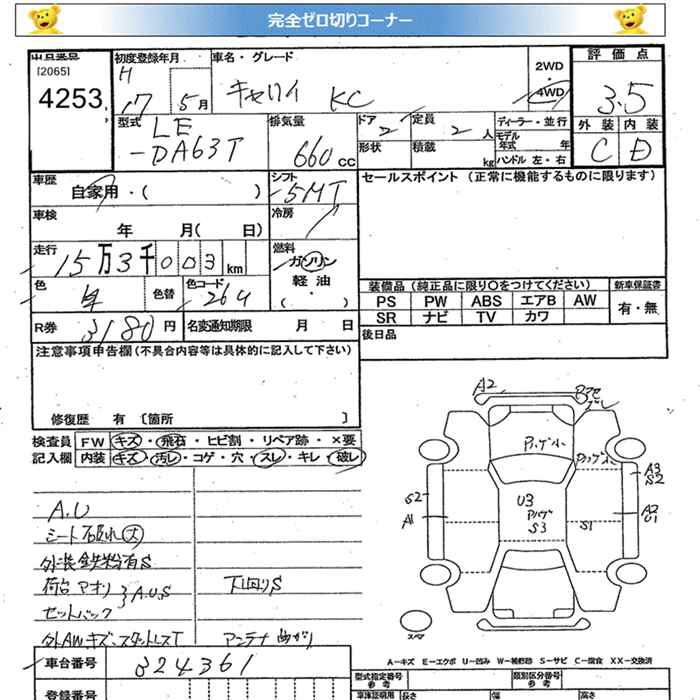 完全ゼロ切りコーナー
[2065]
4253
初度登録年月
H
17 5月
車名・グレード
キャリイ KC
2WD
・
4WD
評価点
3.5
外装 内装
C D
型式
LE
-DA63T
排気量
660 CC
ドア
2
定員
2 人
形状
積載
kg
ディーラー・並行
モデル
年式 年
ハンドル 左・右
車歴
自家用・( )
シフト
5MT
セールスポイント (正常に機能するものに限ります)
車検
年 月( 日)
冷房
走行
15万3千003km
燃料
ガソリン
軽油
( ・ )
色
色替
色コード
26U
装備品 (純正品に限り○をつけてください)
新車保証書
PS PW ABS エアB AW
SR ナビ TV カワ
有・無
R券
3180円
名変通知期限 月 日
後日品
注意事項申告欄(不具合内容等は具体的に記入して下さい)
修復歴 有 〔箇所 〕
検査員
記入欄
FW キズ・飛石・ヒビ割・リペア跡・×要
内装 キズ・汚レ・コゲ・穴・スレ・キレ・破レ
A.U
シート破れ大
外装鉄粉有S
荷台アオリ}A.U.S
下回りS
セットバック
外AWキズ、スタットレスT
アンテナ曲がり
A2
A3
S2
S2
A1
U3
S3
S1
A2
U1
スペア
A-キズ E-エクボ U-凹み W-補修跡 S-サビ C-腐食 XX-交換済
車台番号
324361
登録番号
型式指定番号
参考
類別区分番号
参考
車庫証明用
長さ
幅
高さ